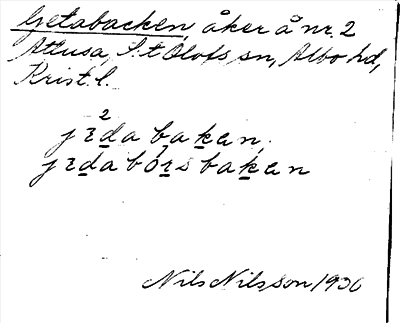 Getabacken, åker å nr. 2
Attusa, S:t Olofs sn, Albo hd,
Krist. l.
2
jɪda bakan,
jɪdabórs bakan
Nils Nilsson 1930